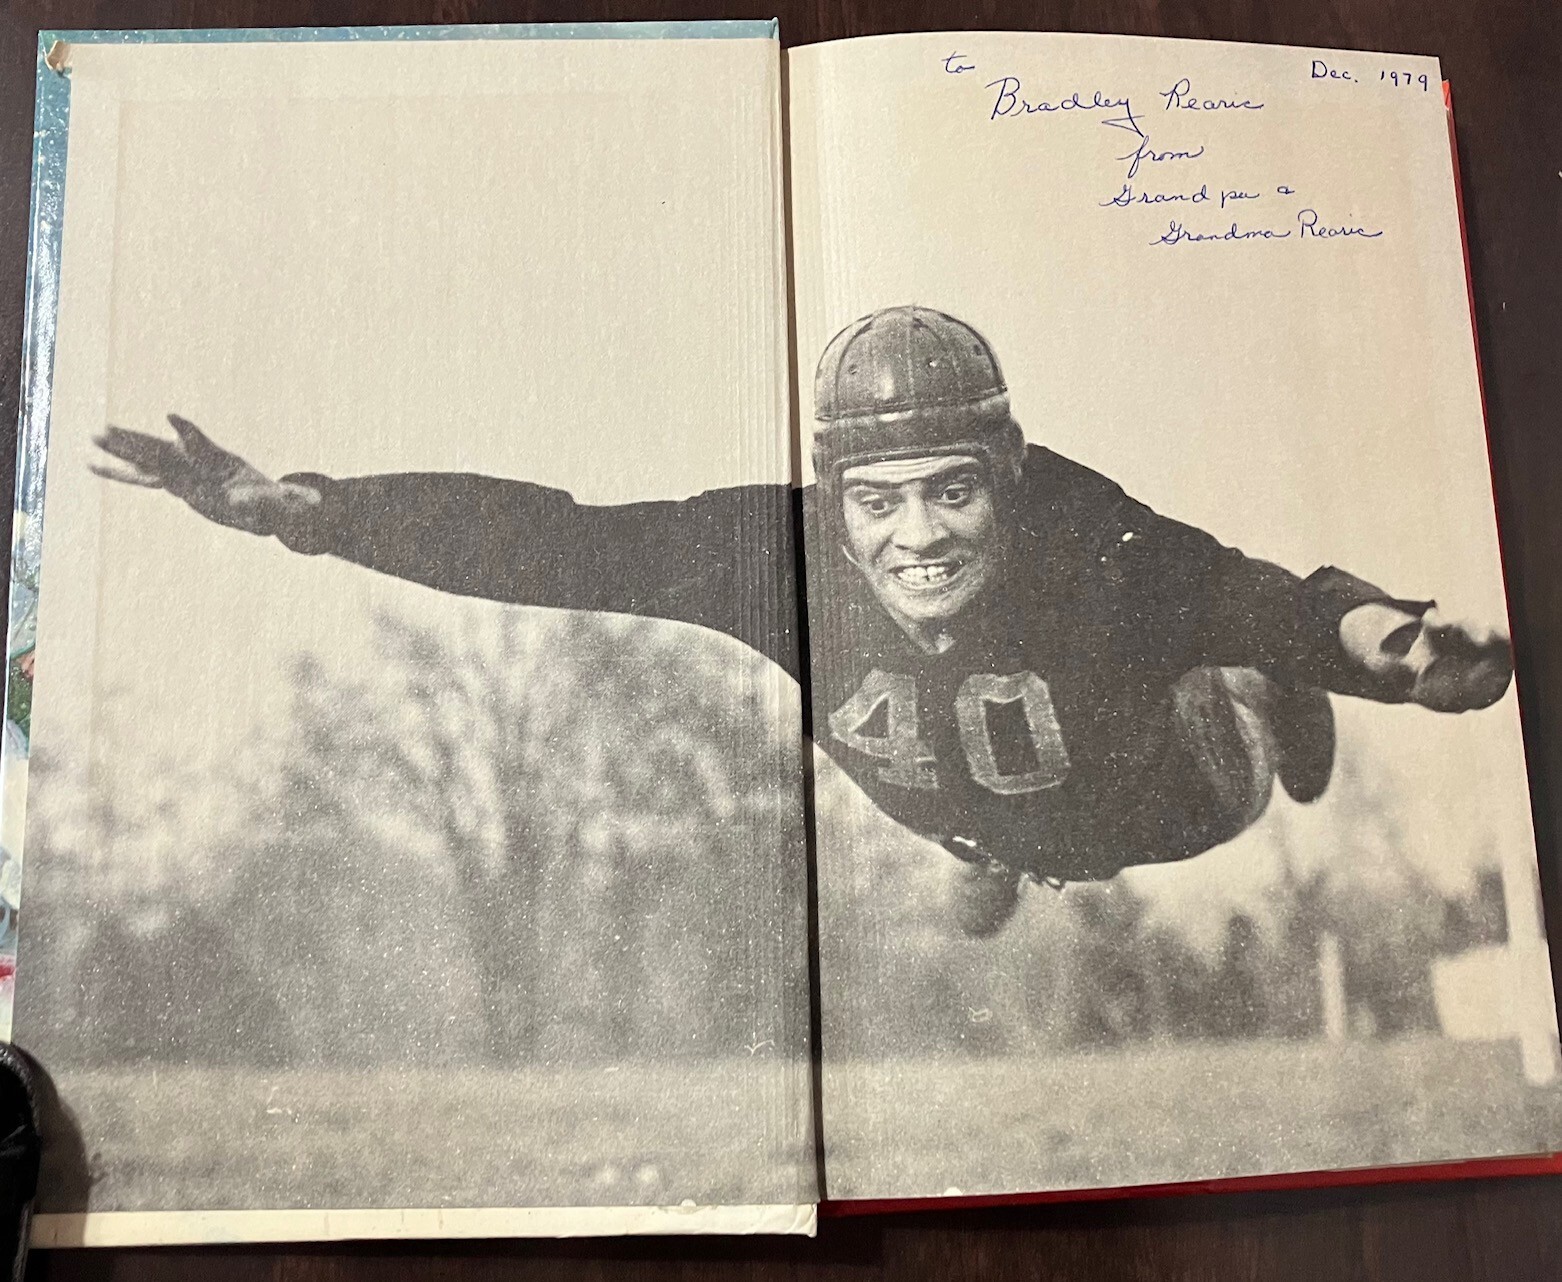 to
Dec. 1979
Bradley Rearic
from
Grandpa &
Grandma Rearic
40